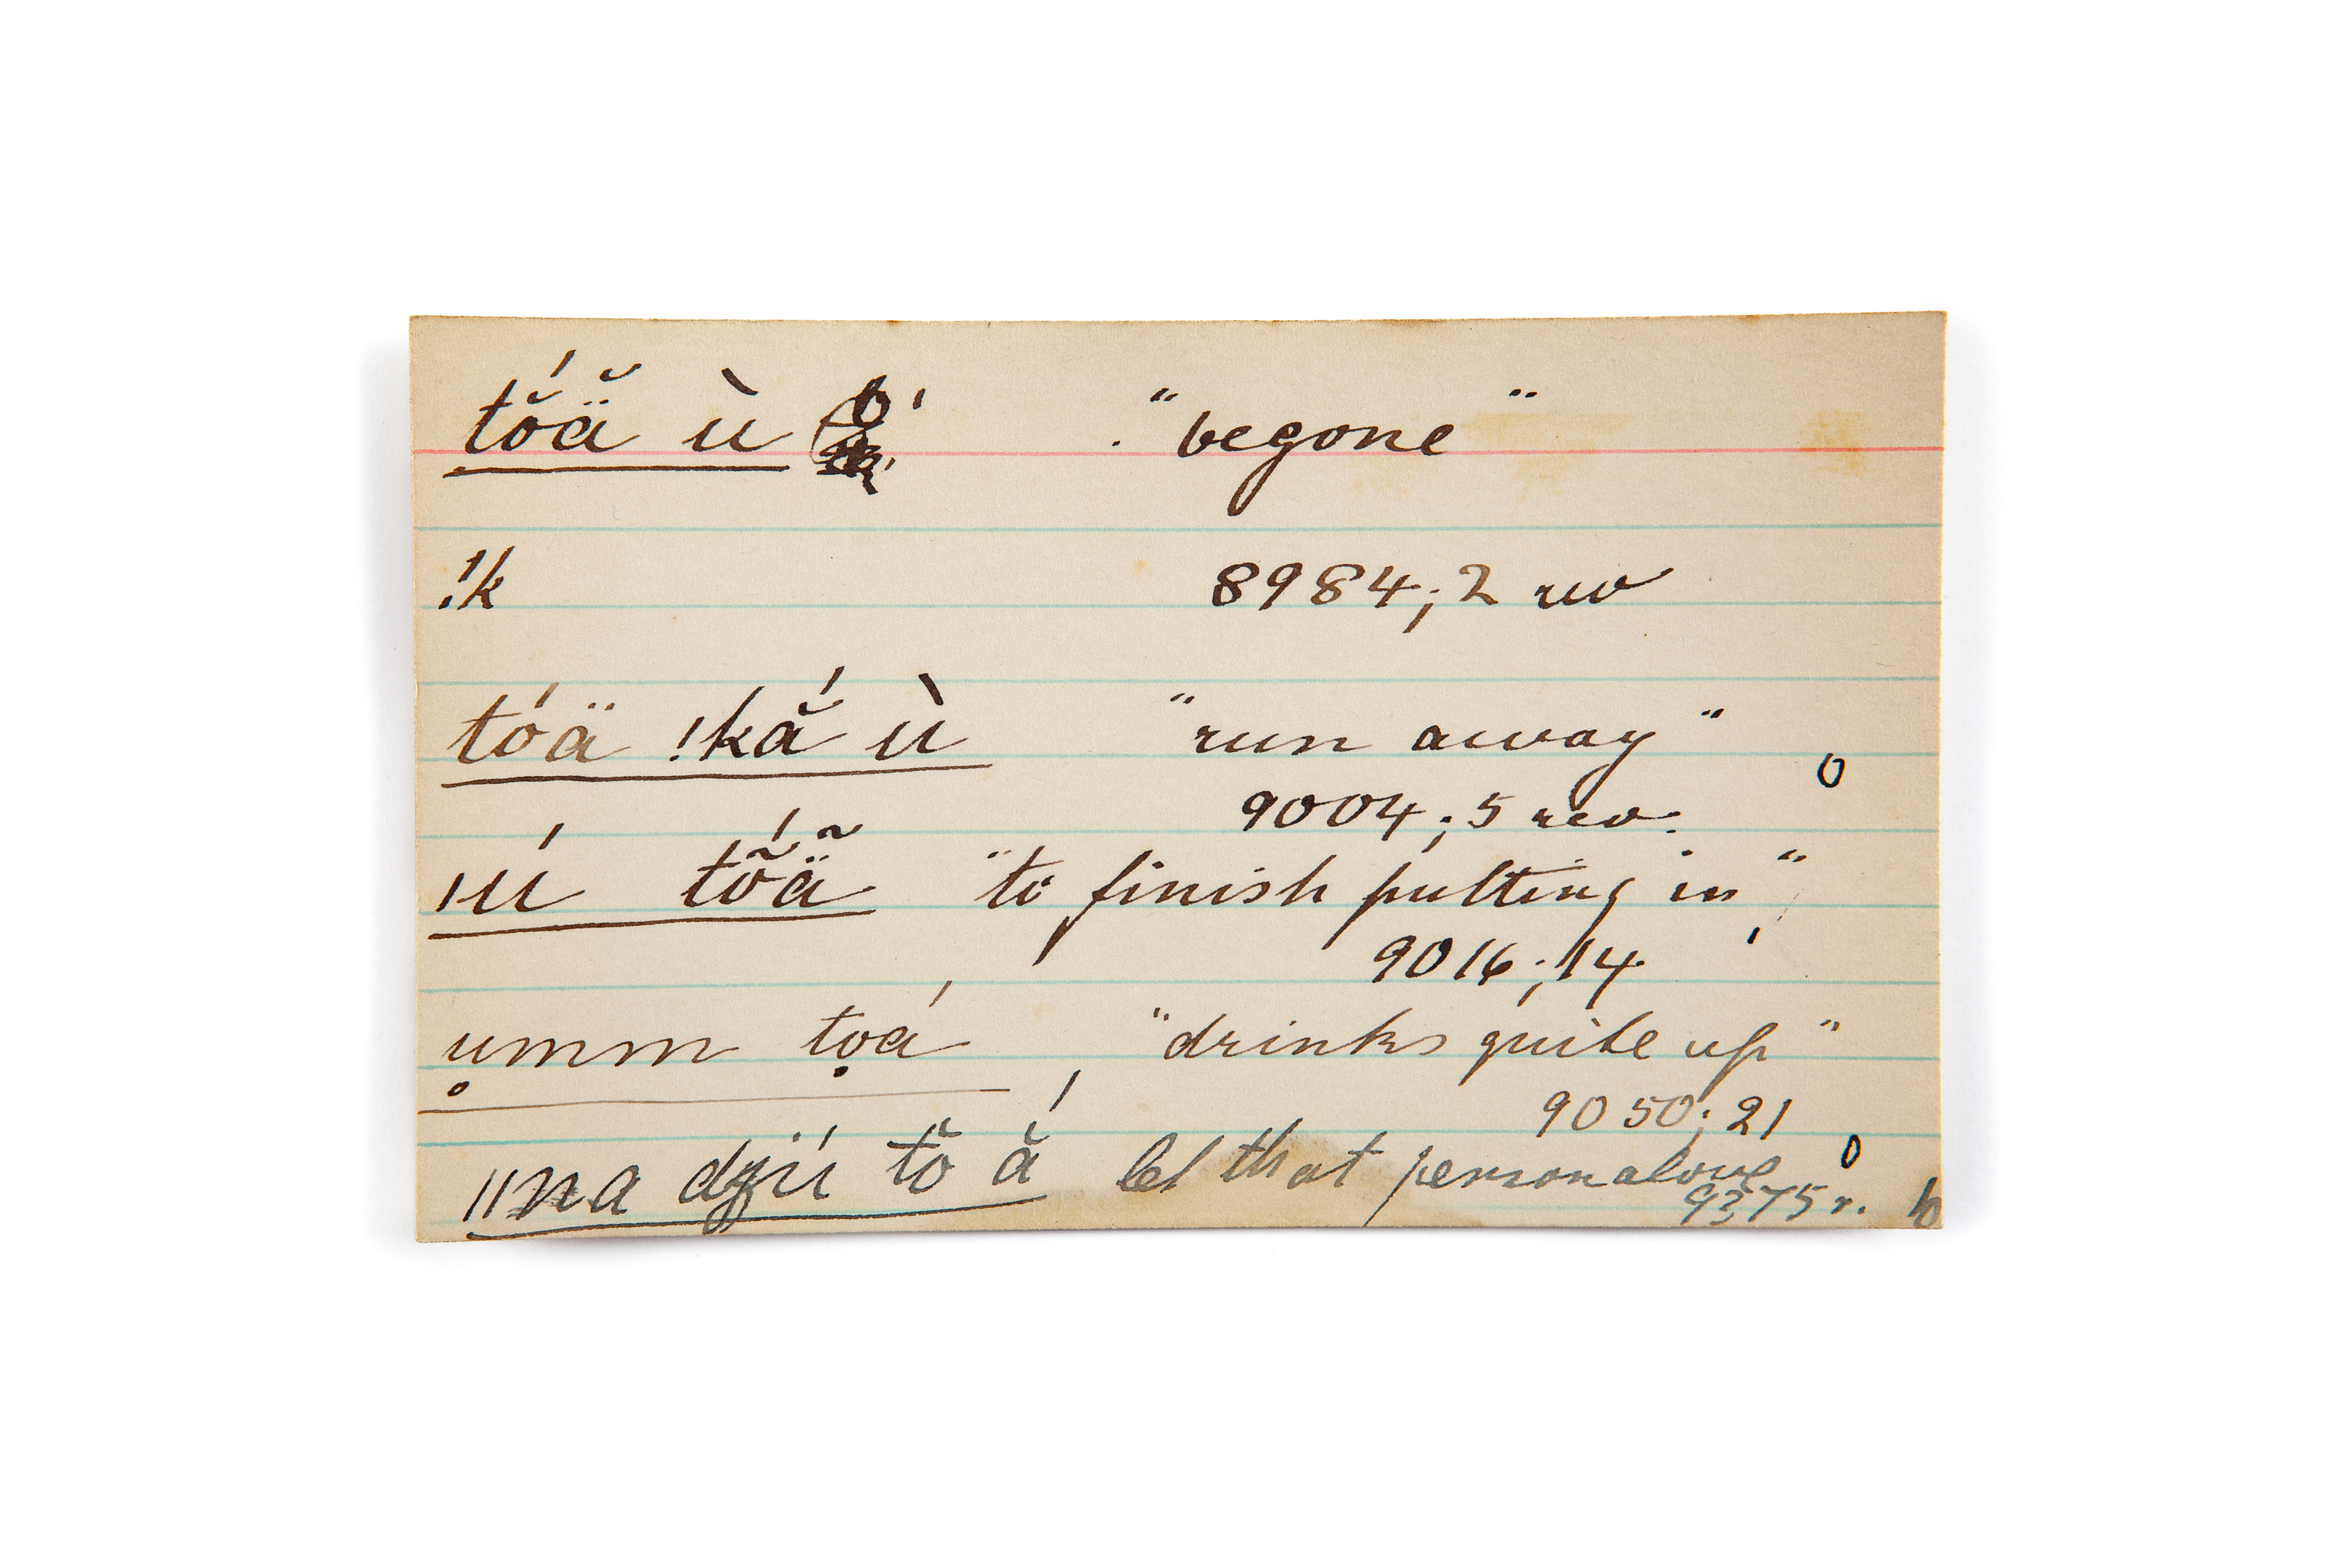 tŏ́ä̆ ù "begone"
!k 8984; 2 rev
tóä !kắ ù "run away"
9004; 5 rev.
|ú tṍä̃ "to finish putting in"
9016; 14
ụmm tọá "drinks quite up"
9050; 21
||na dzú tŏ ắ let that person alone
9375 r.